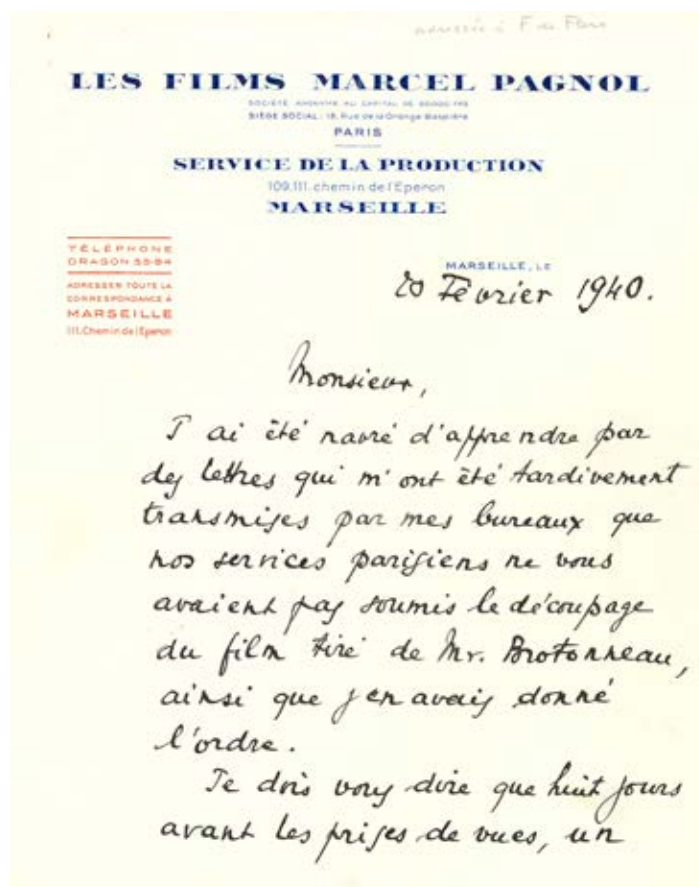 adressée à F de Flers
LES FILMS MARCEL PAGNOL
SOCIÉTÉ ANONYME AU CAPITAL DE 50.000 FRS
SIÈGE SOCIAL: 13, Rue de la Grange Batelière
PARIS
SERVICE DE LA PRODUCTION
109,111.chemin de l'Eperon
MARSEILLE
TÉLÉPHONE
DRAGON 55-84
ADRESSER TOUTE LA
CORRESPONDANCE A
MARSEILLE
111.Chemin de l'Eperon
MARSEILLE, LE
20 Février 1940.
Monsieur,
J ai été navré d'apprendre par
des lettres qui m'ont été tardivement
transmises par mes bureaux que
nos services parisiens ne vous
avaient pas soumis le découpage
du film tiré de Mr. Brotonneau,
ainsi que j'en avais donné
l'ordre.
Je dois vous dire que huit jours
avant les prises de vues, un